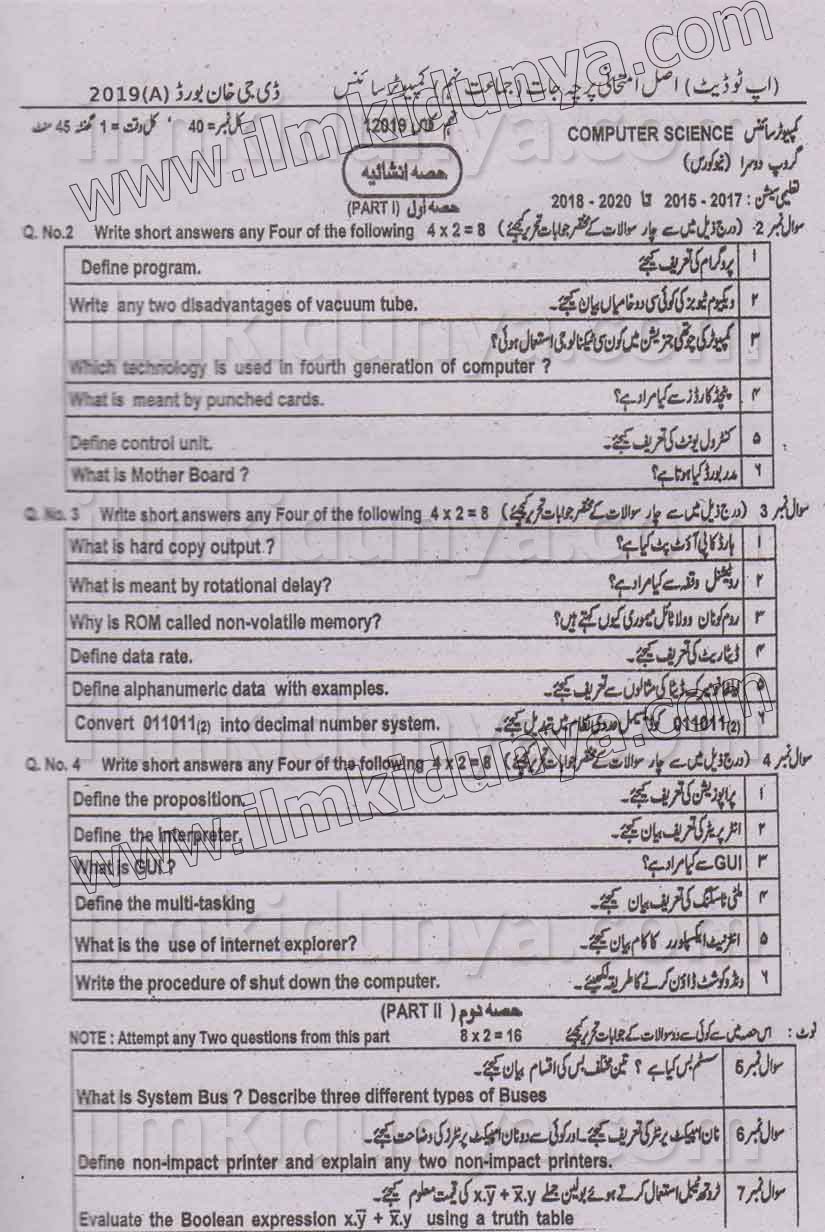 (اپ ٹو ڈیٹ) اصل امتحانی پرچہ جات (جماعت نہم) کمپیوٹر سائنس ڈی جی خان بورڈ 2019(A)
کمپیوٹر سائنس COMPUTER SCIENCE نہم 12019 کل نمبر = 40 ' کل وقت = 1 گھنٹہ 45 منٹ
گروپ دوسرا (نیو کورس) حصہ انشائیہ
تعلیمی سیشن: 2017 - 2015 تا 2020 - 2018
حصہ اول (PART I)
Q. No.2 Write short answers any Four of the following 4 x 2 = 8 سوال نمبر 2- (درج ذیل میں سے چار سوالات کے مختصر جوابات تحریر کیجئے)
Define program. پروگرام کی تعریف کیجئے ۱
Write any two disadvantages of vacuum tube. ویکیوم ٹیوبز کی کوئی سی دو خامیاں بیان کیجئے۔ ۲
کمپیوٹر کی چوتھی جنریشن میں کون سی ٹیکنالوجی استعمال ہوئی؟ ۳
Which technology is used in fourth generation of computer ?
What is meant by punched cards. پنچڈ کارڈز سے کیا مراد ہے؟ ۴
Define control unit. کنٹرول یونٹ کی تعریف کیجئے۔ ۵
What is Mother Board ? مدر بورڈ کیا ہوتا ہے؟ ۶
Q. No. 3 Write short answers any Four of the following 4 x 2 = 8 سوال نمبر 3 (درج ذیل میں سے چار سوالات کے مختصر جوابات تحریر کیجئے)
What is hard copy output ? ہارڈ کاپی آؤٹ پٹ کیا ہے؟ ۱
What is meant by rotational delay? روٹیشنل وقفہ سے کیا مراد ہے؟ ۲
Why is ROM called non-volatile memory? روم کو نان وولاٹائل میموری کیوں کہتے ہیں؟ ۳
Define data rate. ڈیٹا ریٹ کی تعریف کیجئے۔ ۴
Define alphanumeric data with examples. ڈیٹا کی مثالوں سے تعریف کیجئے۔ ۵
Convert 011011(2) into decimal number system. 011011(2) کو ڈیسیمل عددی نظام میں تبدیل کیجئے۔ ۶
Q. No. 4 Write short answers any Four of the following 4 x 2 = 8 سوال نمبر 4 (درج ذیل میں سے چار سوالات کے مختصر جوابات تحریر کیجئے)
Define the proposition. پراپوزیشن کی تعریف کیجئے۔ ۱
Define the interpreter. انٹرپریٹر کی تعریف بیان کیجئے۔ ۲
What is GUI ? GUI سے کیا مراد ہے؟ ۳
Define the multi-tasking ملٹی ٹاسکنگ کی تعریف بیان کیجئے۔ ۴
What is the use of internet explorer? انٹرنیٹ ایکسپلورر کا کام بیان کیجئے۔ ۵
Write the procedure of shut down the computer. ونڈو کو شٹ ڈاؤن کرنے کا طریقہ لکھیئے۔ ۶
حصہ دوم (PART II)
NOTE : Attempt any Two questions from this part 8 x 2 = 16 نوٹ : اس حصہ میں سے کوئی سے دو سوالات کے جوابات تحریر کیجئے
سوال نمبر 5 سسٹم بس کیا ہے ؟ تین مختلف بس کی اقسام بیان کیجئے۔
What is System Bus ? Describe three different types of Buses
سوال نمبر 6 نان امپیکٹ پرنٹر کی تعریف کیجئے۔ اور کوئی سے دو نان امپیکٹ پرنٹرز کی وضاحت کیجئے۔
Define non-impact printer and explain any two non-impact printers.
سوال نمبر 7 ٹروتھ ٹیبل استعمال کرتے ہوئے بولین جملے x.ȳ + x̄.y کی قیمت معلوم کیجئے۔
Evaluate the Boolean expression x.ȳ + x̄.y using a truth table
www.ilmkidunya.com
www.ilmkidunya.com
ilmkidunya.com
ilmkidunya.com
ilmkidunya.com
ilmkidunya.com
ilmkidunya.com